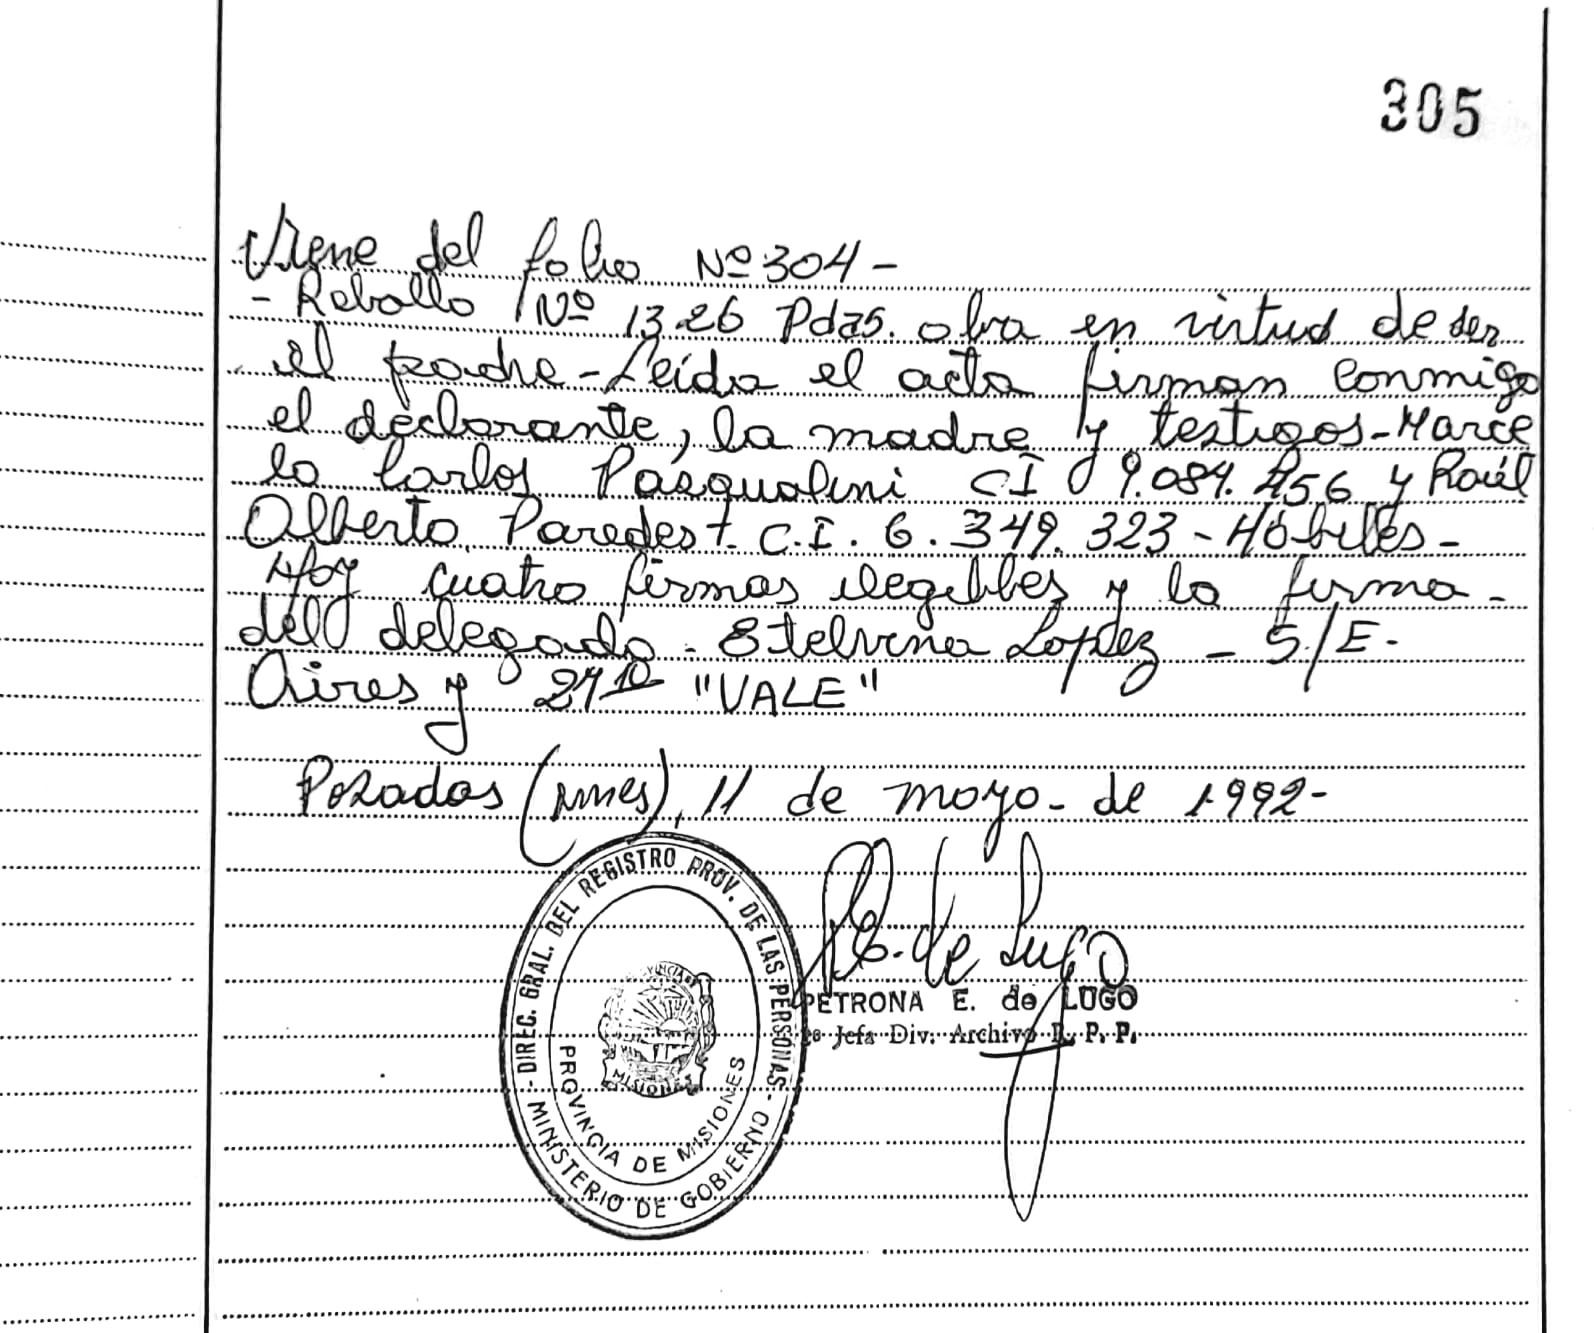 305
Viene del folio Nº 304-
- Rebollo Nº 1326 Pdas. obra en virtud de ser
el padre - Leída el acta firman conmigo
el declarante, la madre y testigos - Marce
lo Carlos Pasqualini CI 9.084.456 y Raúl
Alberto Paredes - C.I. 6.349.323 - Hábiles -
Hay cuatro firmas ilegibles y la firma -
del delegado - Etelvina Lopez - S/E -
Aires y "VALE"
Posadas (Mnes), 11 de mayo - de 1992-
DIREC. GRAL. DEL REGISTRO PROV. DE LAS PERSONAS -
MINISTERIO DE GOBIERNO -
PROVINCIA DE MISIONES
MISIONES
P.E. de Lugo
PETRONA E. de LUGO
Jefa Div. Archivo R. P. P.